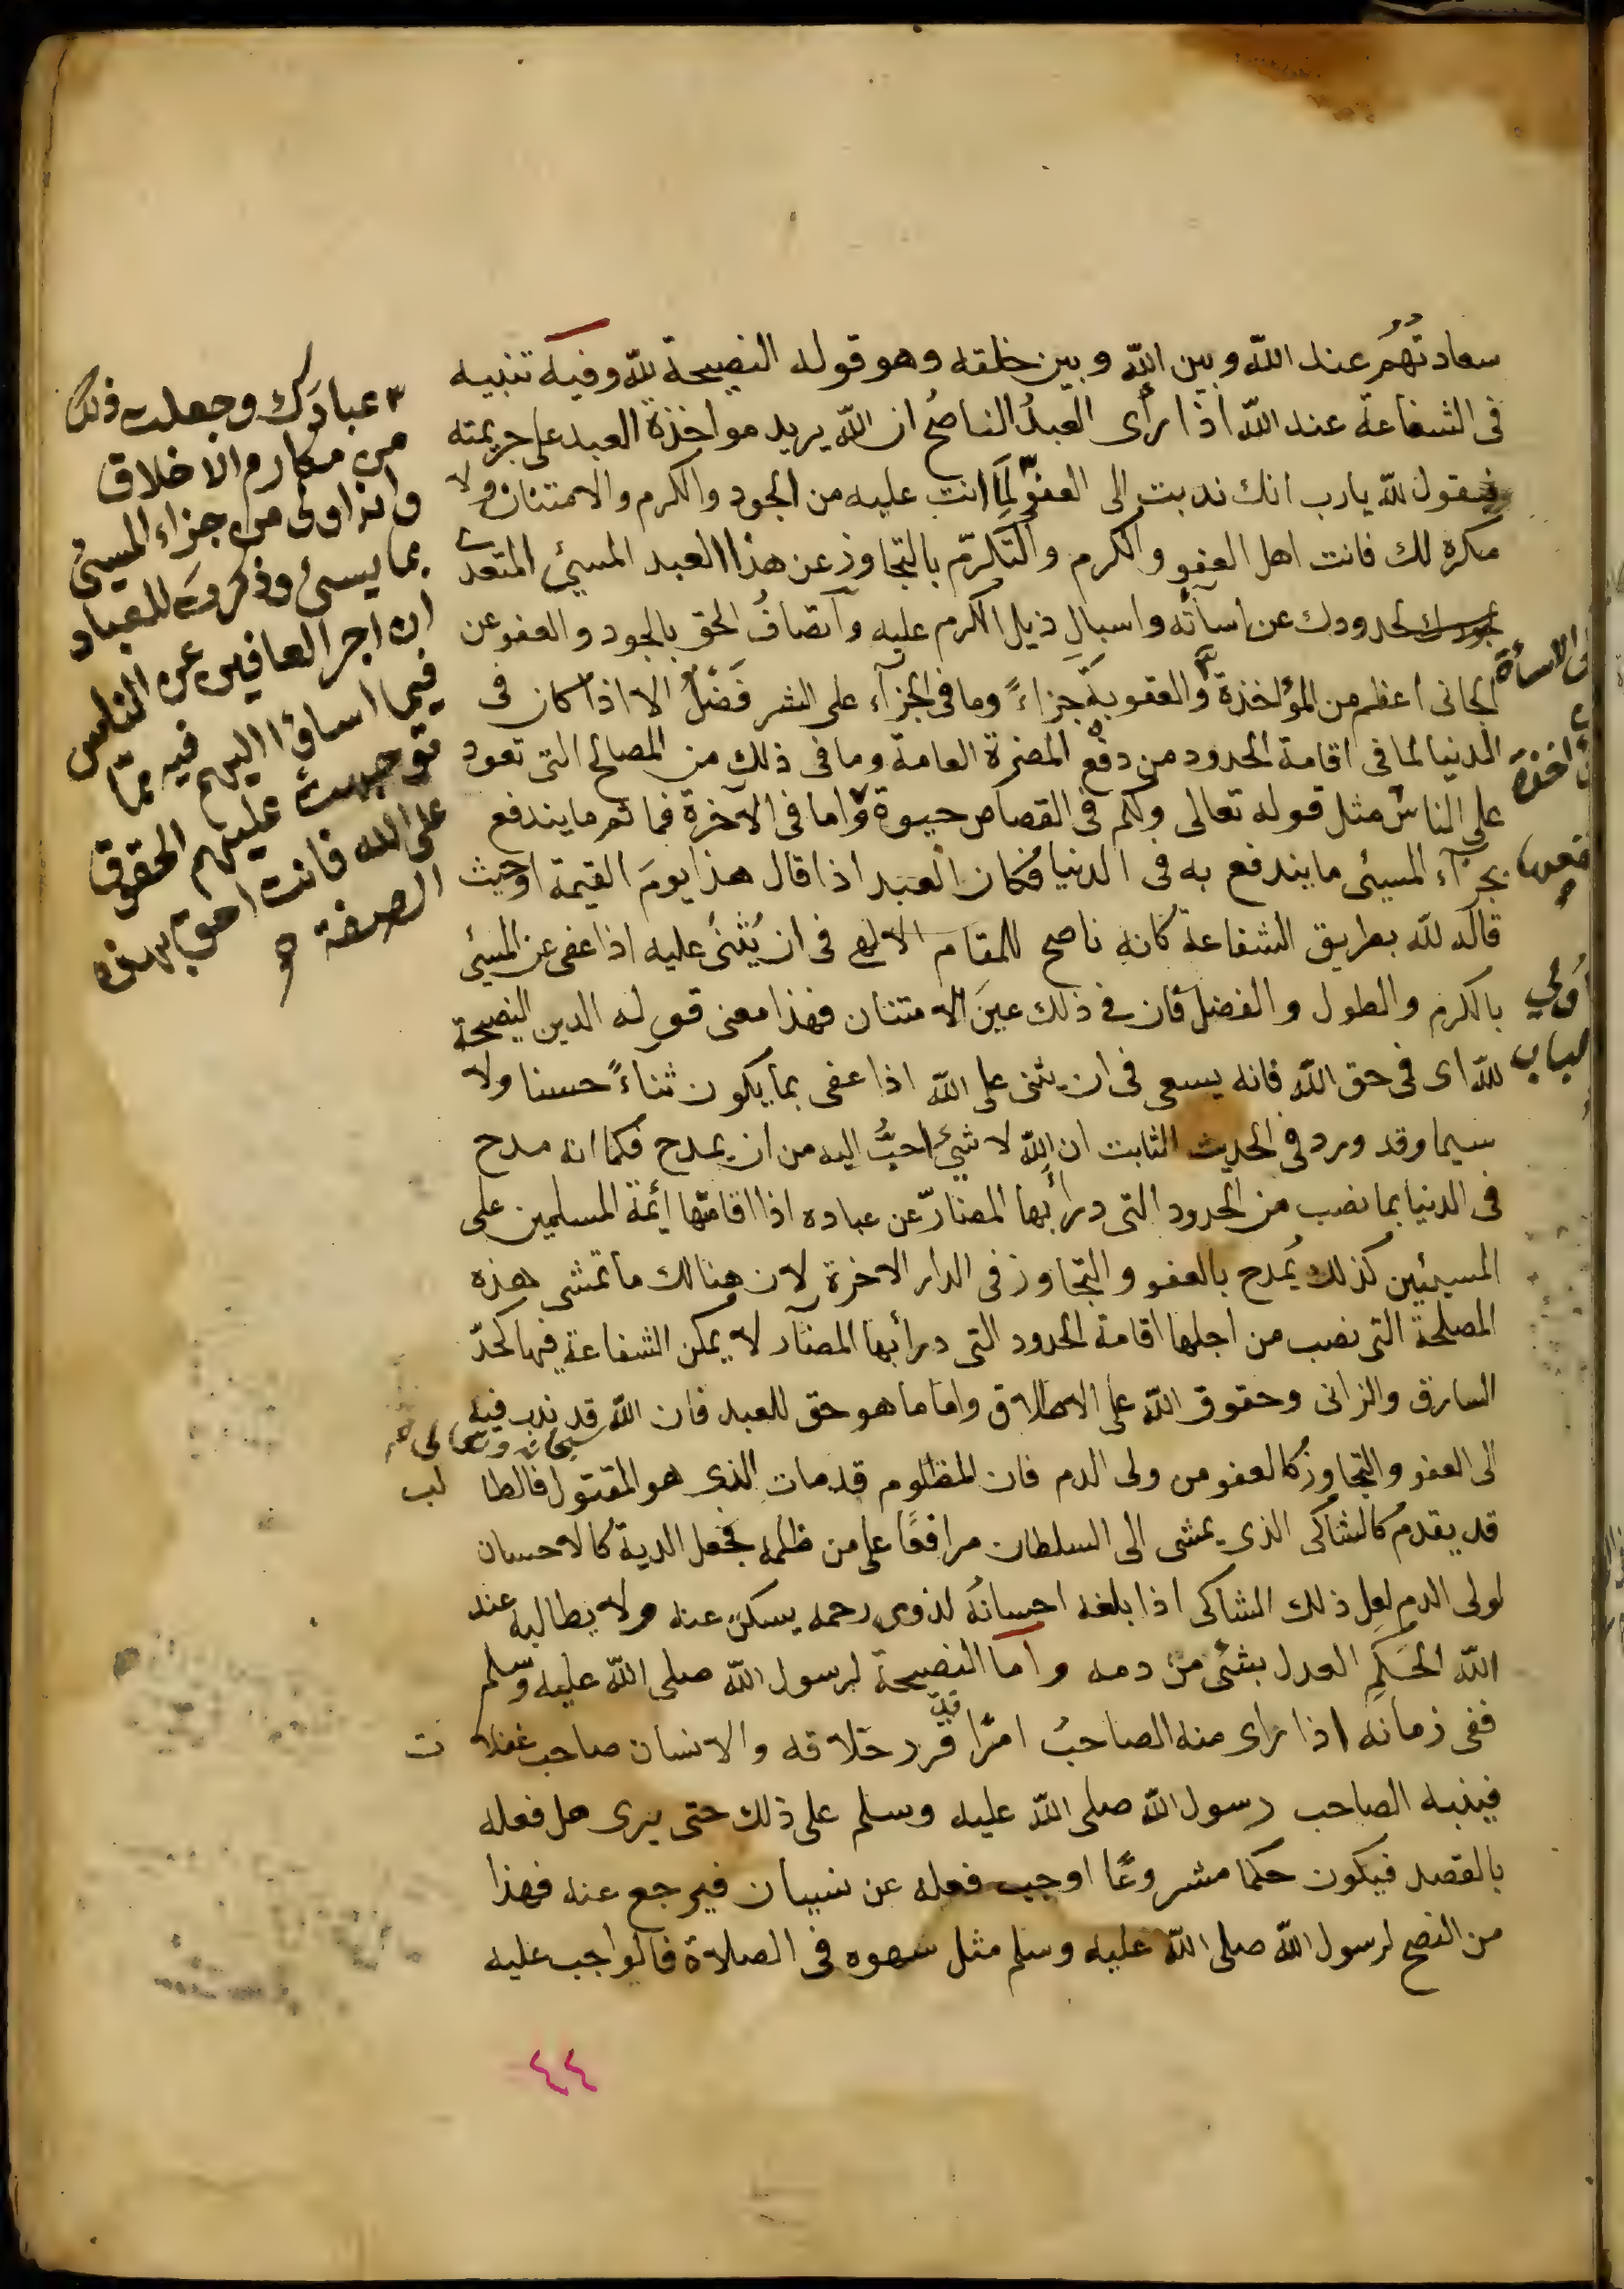 سعادتهم عند الله وبين الله وبين خلقه وهو قوله النصيحة لله وفيه تنبيه
فى الشفاعة عند الله اذا رأى العبدُ الناصحُ ان الله يريد مواخذة العبد على جريمته
فيقول لله يارب انك ندبت الى العفو لِمَا انت عليه من الجود والكرم والامتنان ولا
مكره لك فانت اهل العفو والكرم والتكرّم بالتجاوز عن هذا العبد المسيئ المتعدى
لحدودك عن اسآئه واسبالِ ذيل الكرم عليه واتصافُ الحق بالجود والعفو عن
الجانى اعظم من المؤاخذة والعقوبة جزاءً وما فى الجزآء على الشر فَضْلٌ الا اذا كان فى
الدنيا لما فى اقامة الحدود من دفع المضرة العامة وما فى ذلك من المصالح التى تعود
على الناس مثل قوله تعالى ولكم فى القصاص حيوة واما فى الآخرة فما ثم ما يندفع
بجزآء المسيئ ما يندفع به فى الدنيا فكان العبد اذا قال هذا يومَ القيمة اوحيث
قاله لله بطريق الشفاعة كانه ناصح للمقام الالهى فى ان يُثنىٰ عليه اذا عفى عن المسيئ
بالكرم والطول والفضل فان فى ذلك عينَ الامتنان فهذا معنى قوله الدين النصيحة
لله اى فى حق الله فانه يسعى فى ان يثنى على الله اذا عفى بما يكون ثناءً حسنا ولا
سيما وقد ورد فى الحديث الثابت ان الله لا شيئ احبُّ اليه من ان يمدح فكما انه مدح
فى الدنيا بما نصب من الحدود التى درأ بها المضارّ عن عباده اذا اقامتها أيّمة المسلمين على
المسيئين كذلك يُمدح بالعفو والتجاوز فى الدار الاخرة لان هنالك ما تمشى هذه
المصلحة التى نصب من اجلها اقامة الحدود التى درأ بها المضآر لا يمكن الشفاعة فيها كحدّ
السارق والزانى وحقوق الله على الاطلاق واما ما هو حق للعبد فان الله قد ندب فيه
سبحانه وتعالى
الى العفو والتجاوز كالعفو من ولى الدم فان المظلوم قد مات الذى هو المقتول فالطا لب
قد يقدم كالشاكى الذى يمشى الى السلطان مرافعًا على من ظلمه فجعل الدية كالاحسان
لولى الدم لعل ذلك الشاكى اذا بلغه احسانُه لذوى رحمه يسكن عنه ولا يطالبه عند
الله الحَكَمِ العدل بشئ من دمه واما النصيحة لرسول الله صلى الله عليه وسلم
ففى زمانه اذا رأى منه الصاحبُ امرًا قرر خلافه والانسان صاحب غفلا ت
فينبه الصاحب رسول الله صلى الله عليه وسلم على ذلك حتى يرى هل فعله
بالقصد فيكون حكما مشروعًا اوجب فعله عن نسيان فيرجع عنه فهذا
من النصح لرسول الله صلى الله عليه وسلم مثل سهوه فى الصلاة فالواجب عليه
٣ عبادَك وجعلت ذلك
من مكارم الاخلاق
وانه اولى من جزاء المسيئ
بما يسئ وذكرت للعباد
ان اجر العافين عن الناس
فيما اساؤا اليهم فيه مما
توجهت عليهم الحقوق
على الله فانت احق بهذه
الصفة
٤٤